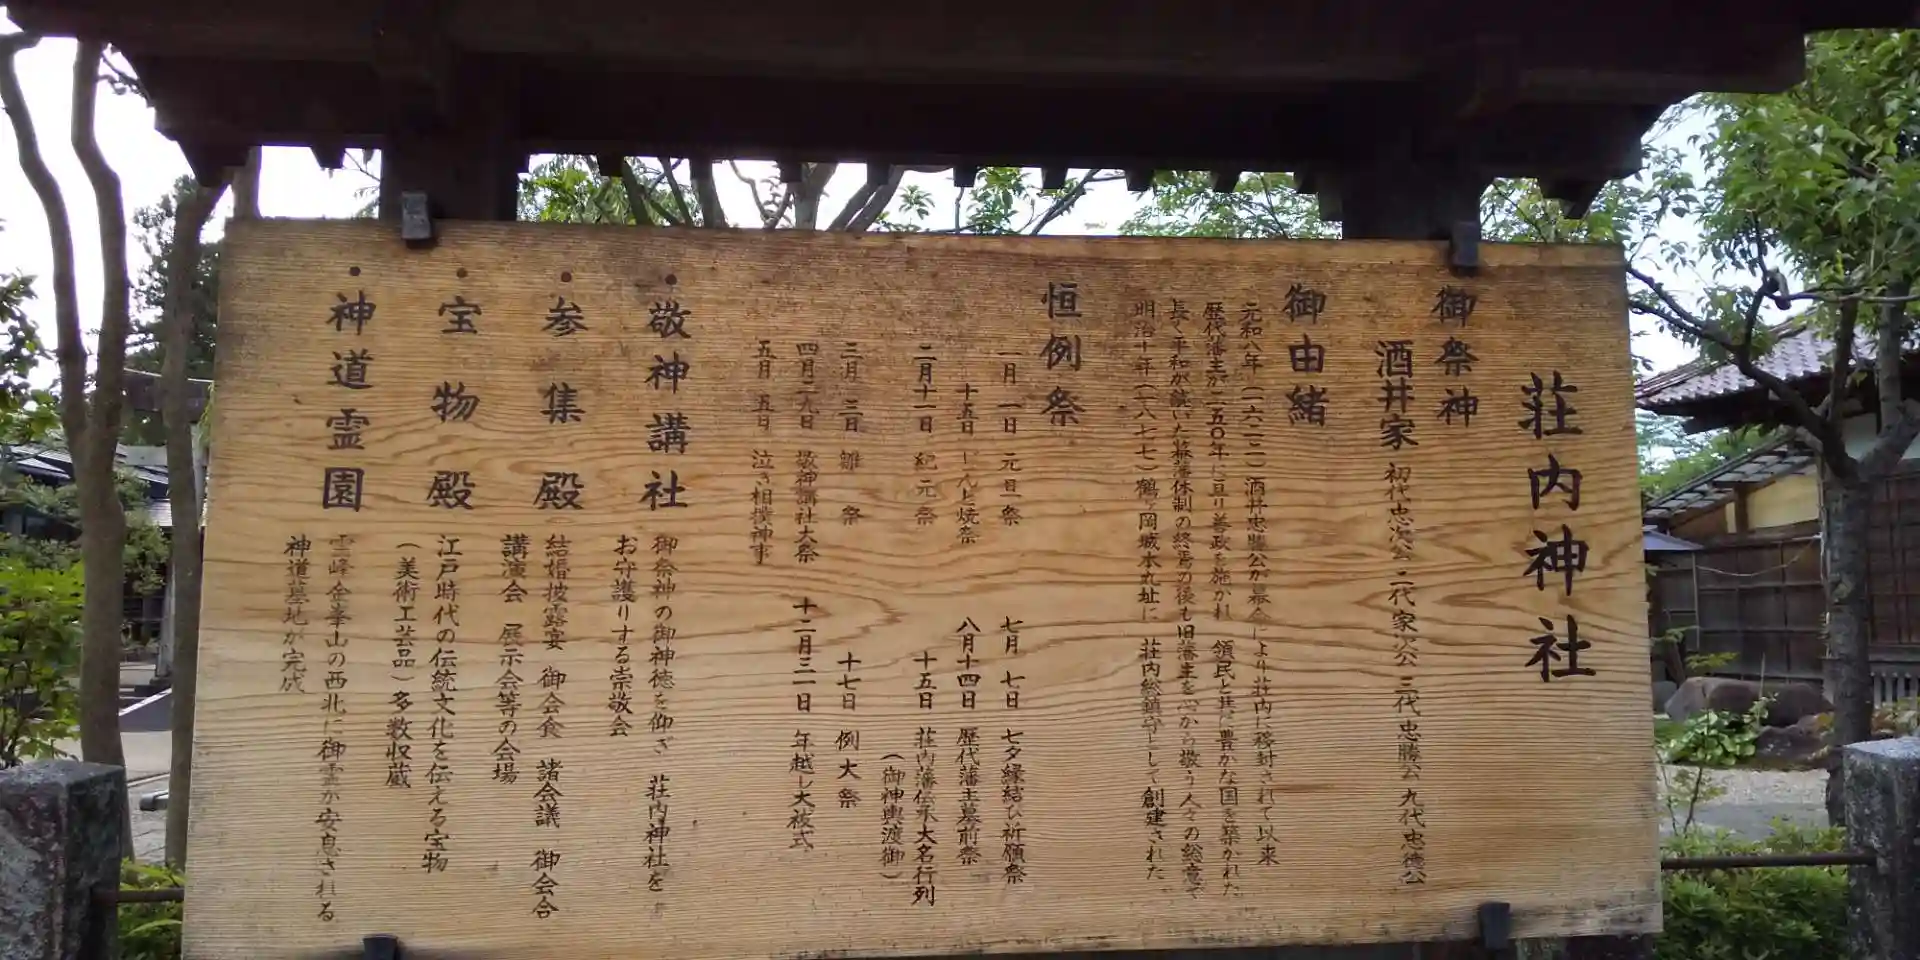 荘内神社
御祭神
酒井家 初代忠次公 二代家次公 三代忠勝公 九代忠徳公
御由緒
元和八年(一六二二)酒井忠勝公が幕命により荘内に移封されて以来
歴代藩主が二五〇年に亘り善政を施かれ 領民と共に豊かな国を築かれた
長く平和が続いた幕藩体制の終焉の後も旧藩主を心から敬う人々の総意で
明治十年(一八七七)鶴ヶ岡城本丸址に 荘内総鎮守として創建された
恒例祭
一月 一日 元旦祭
十五日 どんと焼祭
二月十一日 紀元祭
三月 三日 雛祭
四月二九日 敬神講社大祭
五月 五日 泣き相撲神事
七月 七日 七夕縁結び祈願祭
八月十四日 歴代藩主墓前祭
十五日 荘内藩伝承大名行列
(御神輿渡御)
十七日 例大祭
十二月三一日 年越し大祓式
・敬神講社
御祭神の御神徳を仰ぎ 荘内神社を
お守護りする崇敬会
・参集殿
結婚披露宴 御会食 諸会議 御会合
講演会 展示会等の会場
・宝物殿
江戸時代の伝統文化を伝える宝物
(美術工芸品)多数収蔵
・神道霊園
霊峰金峯山の西北に御霊が安息される
神道墓地が完成